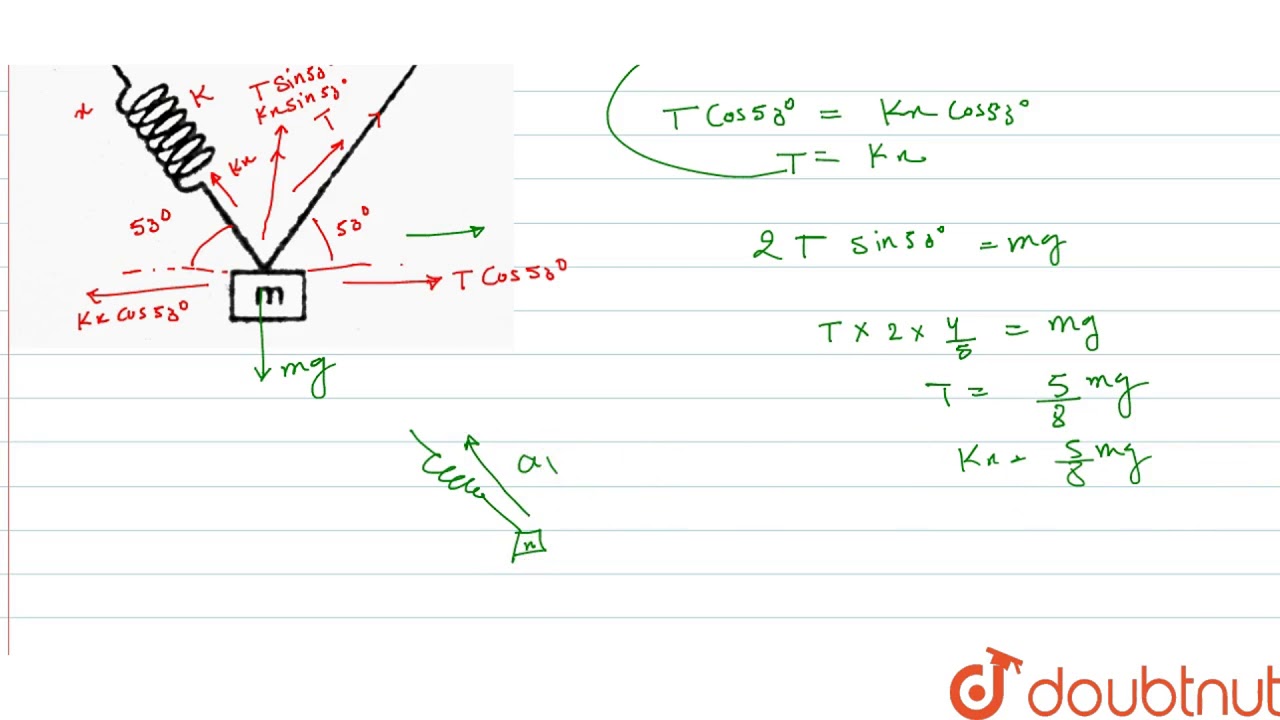 x
K
T sin53°
Kx sin53°
T
Kx
53°
53°
m
T Cos53°
Kx cos53°
mg
T Cos53° = Kx Cos53°
T = Kx
2 T sin53° = mg
T × 2 × 4/5 = mg
T = 5/8 mg
Kx = 5/8 mg
a1
doubtnut